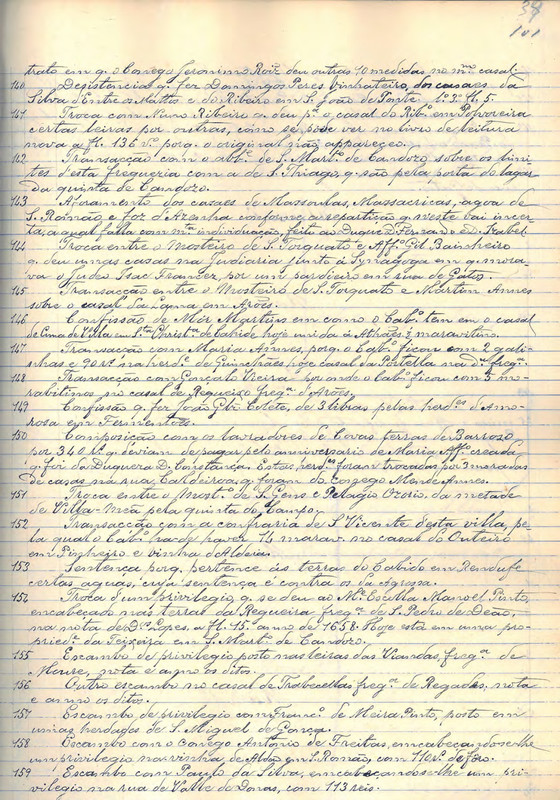 39
101
trato em q. o Conego Jeronimo Roiz deu outras 10 medidas no m.mo casal
140 Desistencia q. fez Domingos Peres Vinhateiro, dos casaes da
Silva d'Entre os Mattos e do Ribeiro em S. João de Ponte L.º 3º fl. 5.
141 Troca com Nuno Ribeiro q. deu p.ª o casal do Rib.º em Polvoreira
certas leiras por outras, como se pode ver no livro de leitura
nova a fl. 136 vº porq. o original não apparece.
142 Transacção com o abb.e de S. Mart.º de Candozo, sobre os limi-
tes d'esta freguezia com a de S. Thiago, q. são pela porta do lagar
da quinta de Candozo.
143 Aforamento dos casaes de Massorhas, Massacricas, agoa de
S. Romão, e foz d'Azenha conforme a repartição q. n'este vai incer-
ta, a qual falla com m.ta individuação, feita ao Duque D. Fernando e D. Izabel
144 Troca entre o Mosteiro de S. Torquato e Aff.º Gil, Bainheiro
q. deu umas casas na Judiaria junto á Synagoga em q. mora-
va o judeo Isac Franzez, por um pardieiro em rua de Gatos.
145 Transacção entre o Mosteiro de S. Torquato e Martim Annes
sobre o casal da Lama em Arões.
146 Confissão de Mór Martins em como o Cab.º tem em o casal
de Cima de Villa em S.ta Christ.ª de Cabide hoje unida á Athães, 3 maravitins.
147 Transacção com Maria Annes, porq. o Cab.º ficou com 2 gali-
nhas e 90 rs. na herd.e de Guinchães hoje casal da Portella na d.ª freg.ª
148 Transacção com Gonçalo Vieira por onde o Cab.º ficou com 5 mo-
rabitinos no casal de Requeixo freg.ª d'Arões.
149 Confissão q. fez João Glz. Estete, de 3 libras pelas herd.es d'Amo-
rosa em Fermentões.
150 Composição com os lavradores de Covas terras de Barroso
por 340 lb.s q. deviam de pagar pelo anniversario de Maria Aff.º creada
q. foi da Duqueza D. Constança. Estas herd.es foram trocadas por 3 moradas
de casas na rua Caldeiroa q. foram do Conego Mende Annes.
151 Troca entre o Most.º de S. Gens e Pelagio Ozorio da metade
de Villa-Meã pela quinta do Campo.
152 Transacção com a confraria de S. Vicente d'esta villa, pe-
la qual o Cab.º ha de haver 14 marav. no casal do Outeiro
em Pinheiro e vinha d'Aldeia.
153 Sentença porq. pertence ás terras do Cabido em Rendufe
certas aguas, cuja sentença é contra os da Agrossa.
154 Troca d'um privilegio q. se deu ao M.e Escolla Manoel Pinto,
encabeçado nas terras da Regueira freg.ª de S. Pedro de Deão,
na nota de D.os Lopes, a fl. 15. anno de 1658. Hoje está em uma pro-
pried.e da Teixeira em S. Mart.º de Candozo.
155 Escambo de privilegio posto nas leiras das Viandas, freg.ª de
Moure, nota e anno os ditos.
156 Outro escambo no casal de Trabecellas freg.ª de Regadas, nota
e anno os ditos.
157 Escambo de privilegio com Franc.º de Meira Pinto, posto em
umas herdades de S. Miguel de Gonça.
158 Escambo com o Conego Antonio de Freitas, encabeçandose-lhe
um privilegio na vinha de Aldão em S. Romão, com 110 rs. de foro.
159 Escambo com Paulo da Silva, encabeçandose-lhe um pri-
vilegio na rua de Valle de Donas, com 113 reis.